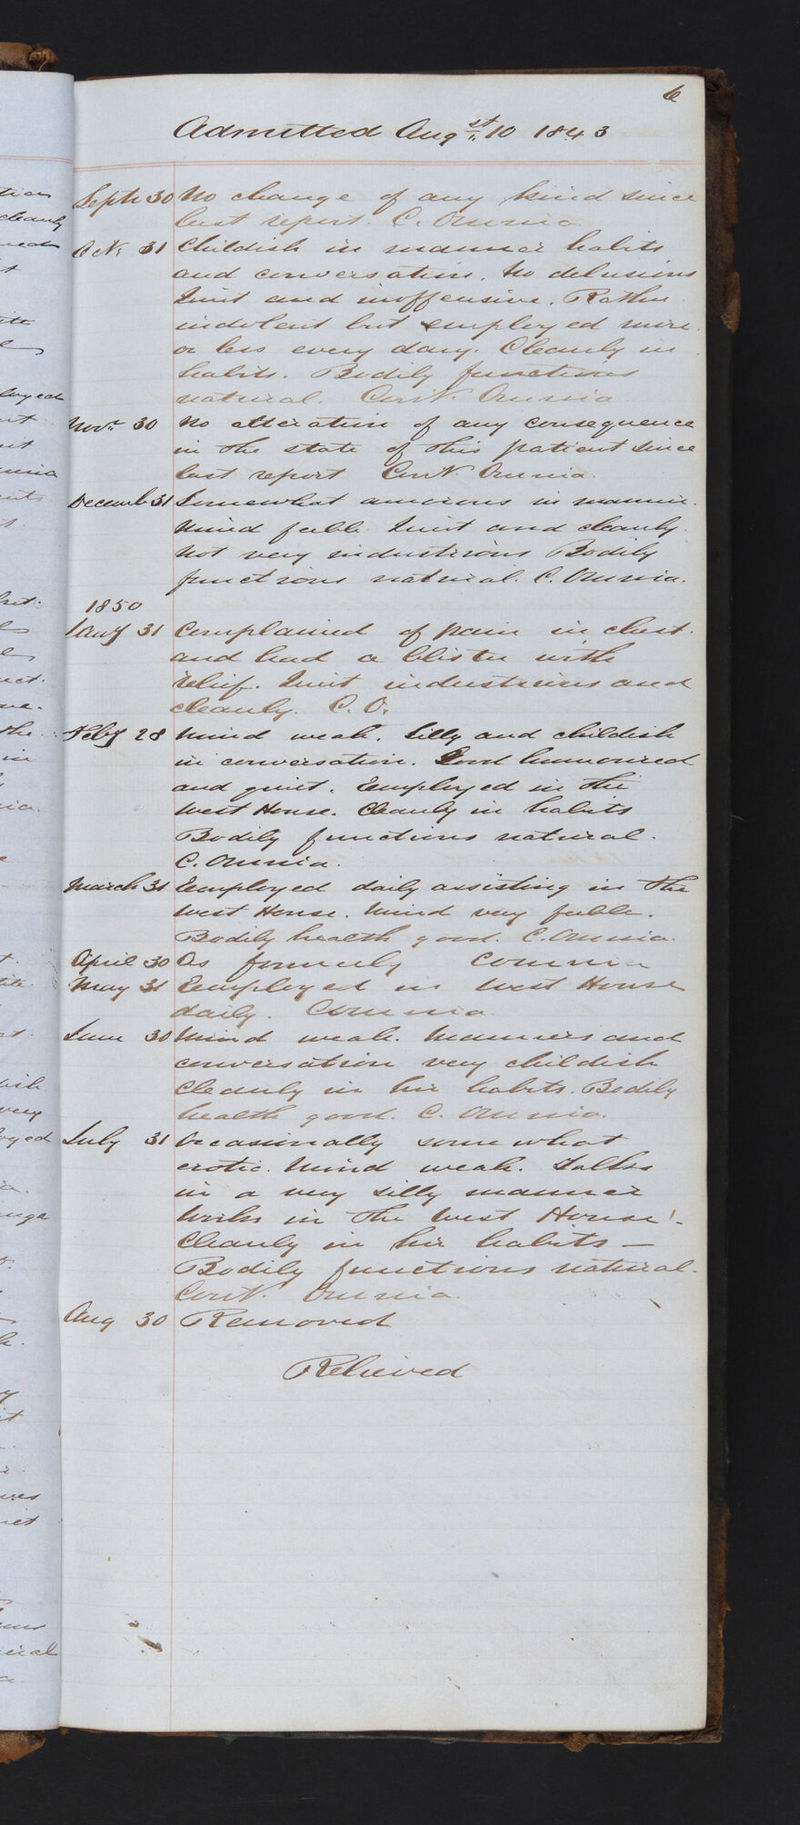 6
Admitted Augst 10 1843
Septr 30 No change of any kind since
last report. C. Omnia
Octr 31 Childish in manner habits
and conversation. No delusions
Quiet and inoffensive. Rather
indolent but employed more
or less every day. Cleanly in
habits. Bodily functions
natural. Contr. Omnia
Novr 30 No alteration of any consequence
in the state of this patient since
last report Contr Omnia
Decemb 31 Somewhat amorous in manner.
Mind feeble. Quiet and cleanly.
Not very industrious Bodily
functions natural. C. Omnia.
1850
Jany 31 Complained of pain in chest.
and had a blister with
relief. Quiet industrious and
cleanly. C. O.
Feby 28 Mind weak. Silly and childish
in conversation. Good humoured
and quiet. Employed in the
West House. Cleanly in habits
Bodily functions natural.
C. Omnia.
March 31 Employed daily assisting in the
West House. Mind very feeble.
Bodily health good. C. Omnia.
April 30 As formerly C Omnia
May 31 Employed in West House
daily. C Omnia
June 30 Mind weak. Manners and
conversation very childish
Cleanly in his habits. Bodily
health good. C. Omnia.
July 31 Occasionally somewhat
erotic. Mind weak. Talks
in a very silly manner
Works in the West House.
Cleanly in his habits —
Bodily functions natural.
Contr. Omnia.
Aug 30 Removed
Relieved